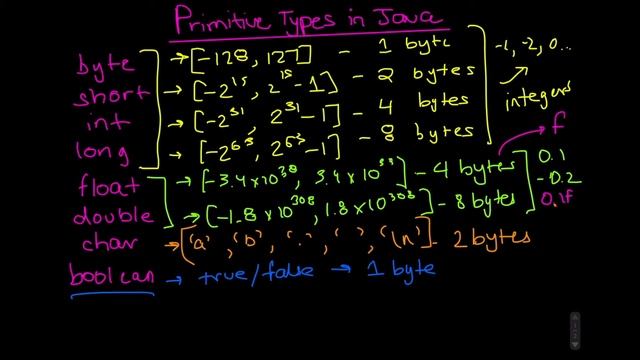 Primitive Types in Java
byte → [-128, 127] - 1 byte -1, -2, 0...
short → [-2^15, 2^15-1] - 2 bytes integers
int → [-2^31, 2^31-1] - 4 bytes
long → [-2^63, 2^63-1] - 8 bytes f
float → [-3.4×10^38, 3.4×10^38] - 4 bytes 0.1
-0.2
double → [-1.8×10^308, 1.8×10^308] - 8 bytes 0.1f
char → ['a', 'b', '.', ' ', '\n'] - 2 bytes
boolean → true/false → 1 byte